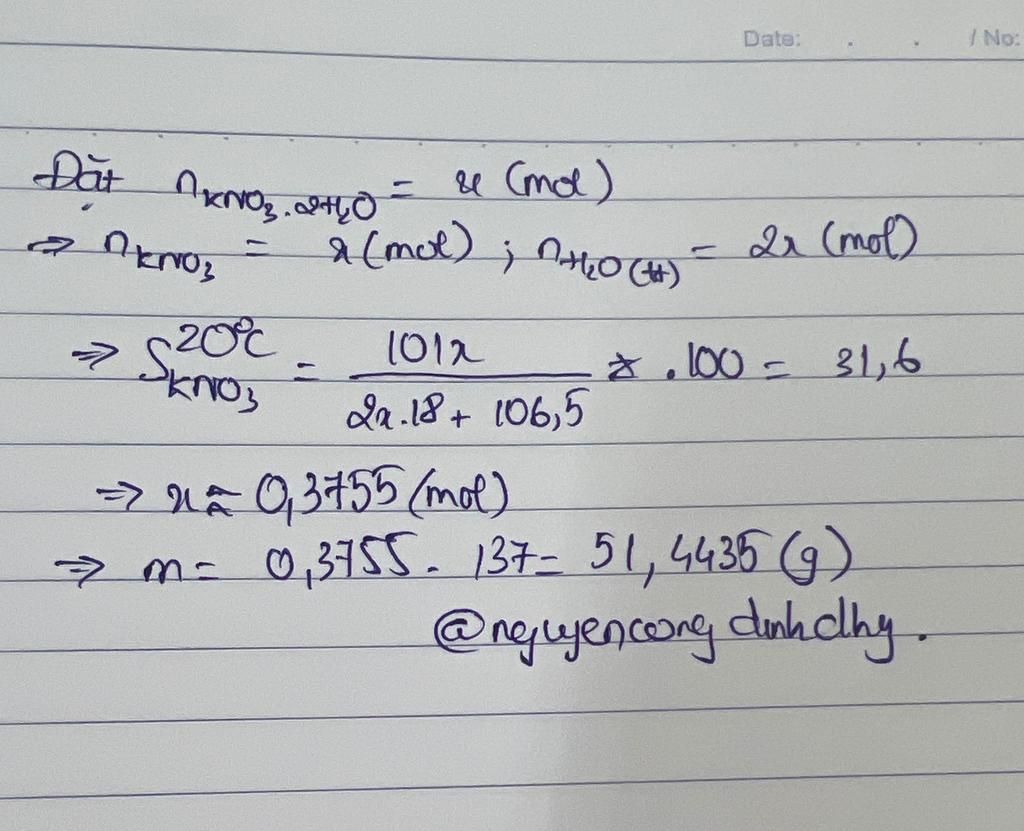 Date: . . / No:
Đặt nKNO₃.2H₂O = x (mol)
=> nKNO₃ = x (mol) ; nH₂O (tt) = 2x (mol)
=> S²⁰°C KNO₃ = 101x / (2x.18 + 106,5) . 100 = 31,6
=> x ≈ 0,3755 (mol)
=> m = 0,3755 . 137 = 51,4435 (g)
@nguyencongdinhdhy.